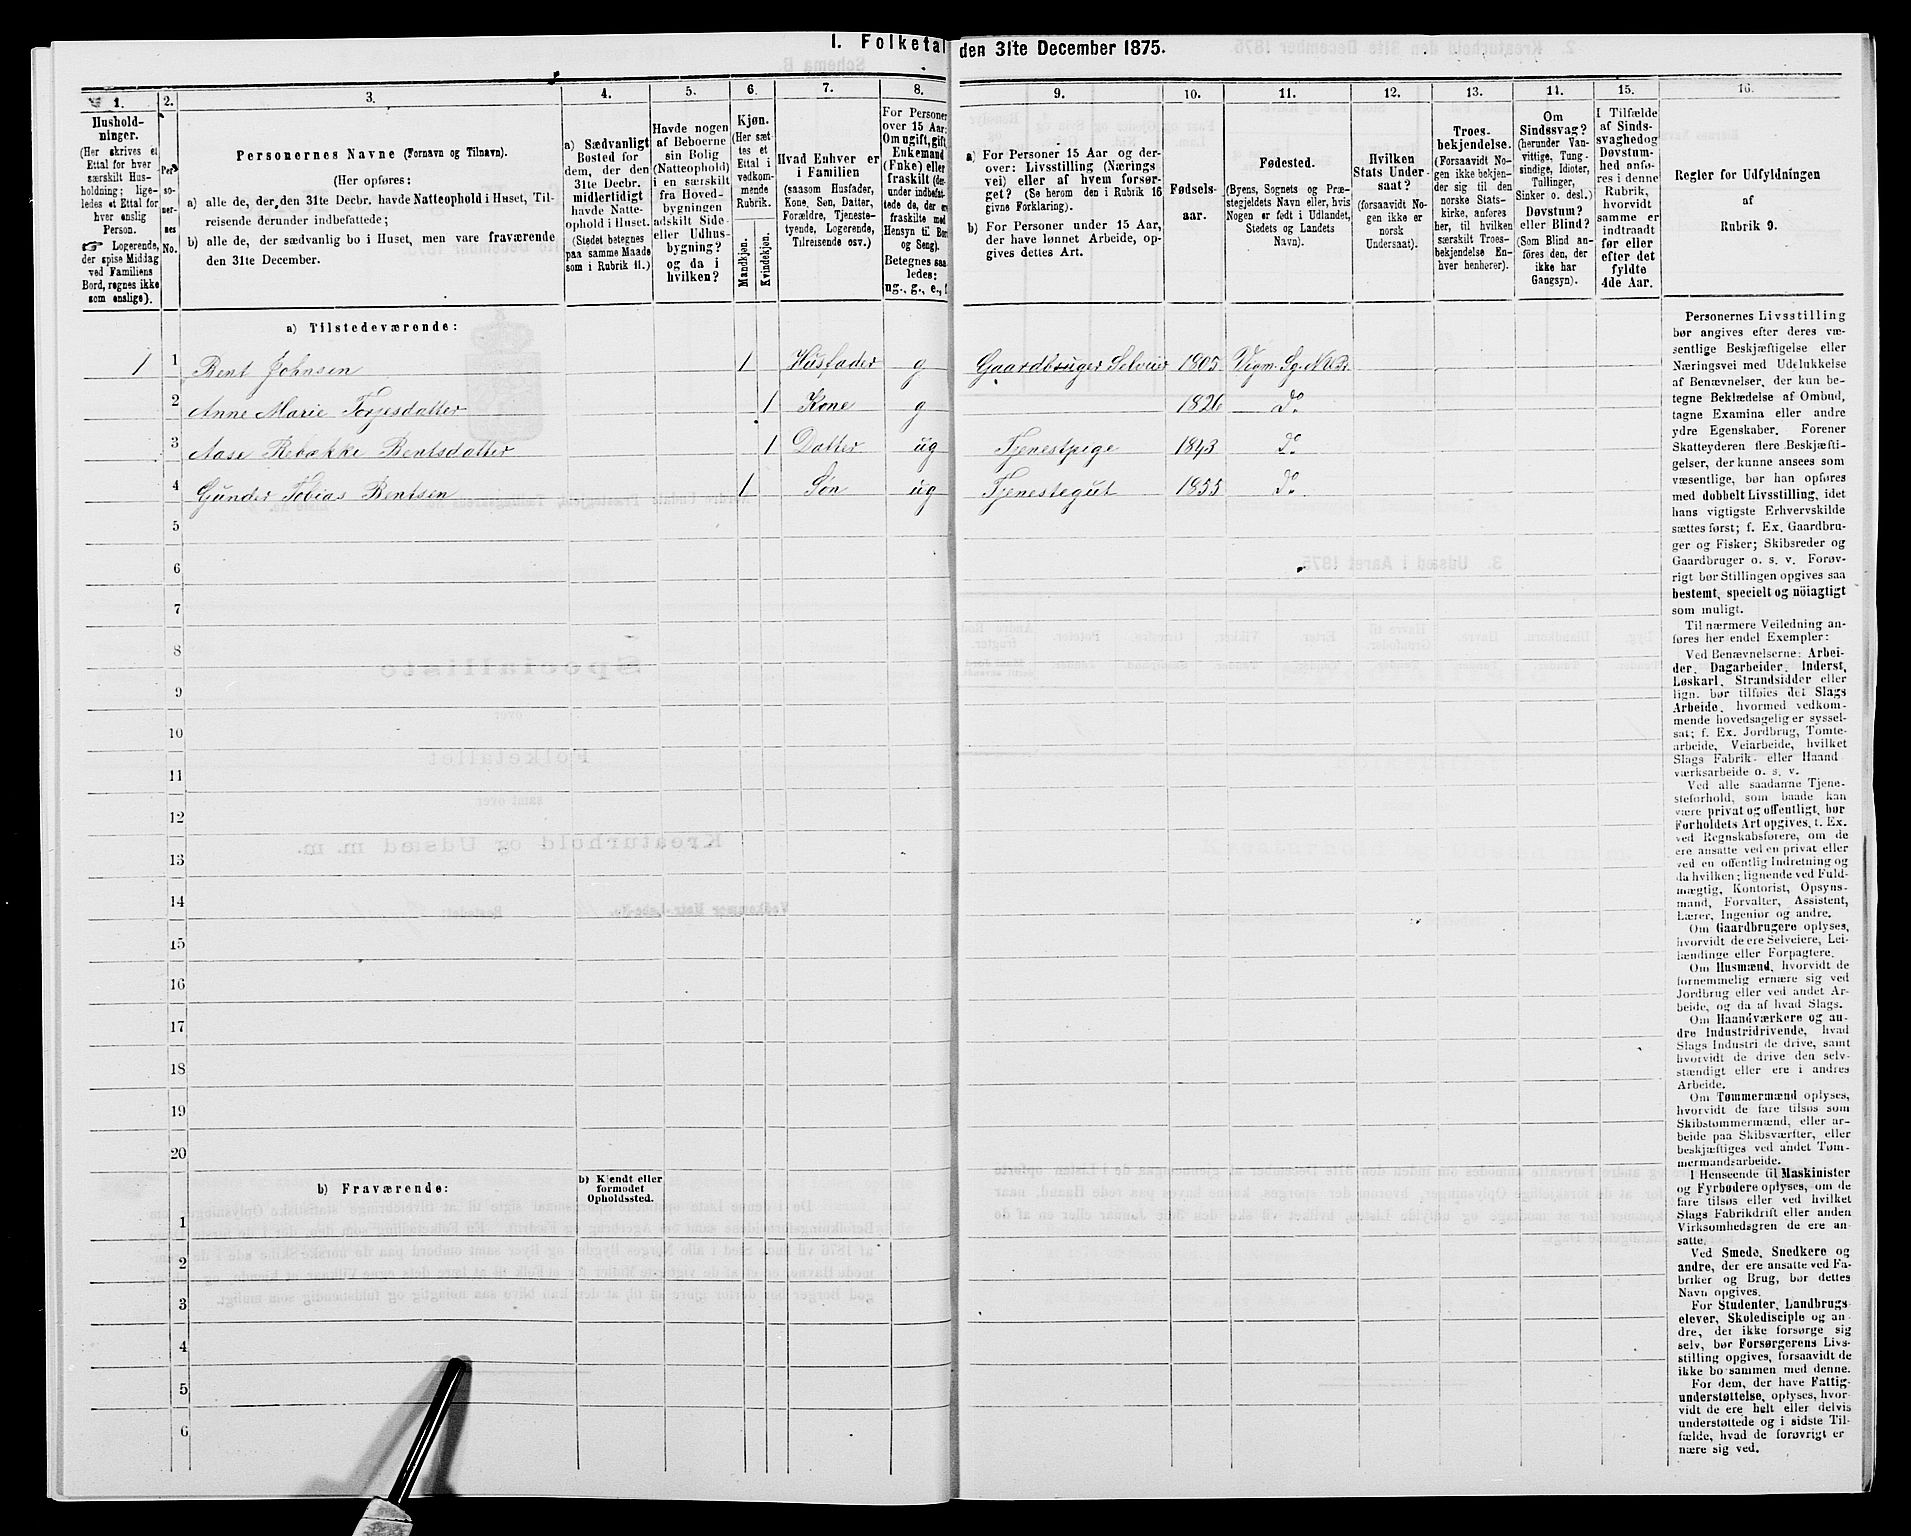 1. Folketal den 31te December 1875.
1. 2. 3. 4. 5. 6. 7. 8. 9. 10. 11. 12. 13. 14. 15. 16.
Hushold-
ninger.
(Her skrives et
Ettal for hver
særskilt Hus-
holdning; lige-
ledes et Ettal for
hver enslig
Person.
☞ Logerende,
der spise Middag
ved Familiens
Bord, regnes ikke
som enslige).
Per-
so-
ner-
nes
No.
Personernes Navne (Fornavn og Tilnavn).
(Her opføres:
a) alle de, der den 31te Decbr. havde Natteophold i Huset, Til-
reisende derunder indbefattede;
b) alle de, der sædvanlig bo i Huset, men vare fraværende
den 31te December.
a) Sædvanligt
Bosted for
dem, der den
31te Decbr.
midlertidigt
havde Natte-
ophold i Huset.
(Stedet betegnes
paa samme Maade
som i Rubrik 11.)
Havde nogen
af Beboerne
sin Bolig
(Natteophold)
i en særskilt
fra Hoved-
bygningen
adskilt Side-
eller Udhus-
bygning?
og da i
hvilken?
Kjøn.
(Her sæt-
tes et
Ettal i
vedkom-
mende
Rubrik.
Mandkjøn.
Kvindekjøn.
Hvad Enhver er
i Familien
(saasom Husfader,
Kone, Søn, Datter,
Forældre, Tjeneste-
tyende, Logerende,
Tilreisende osv.)
For Personer
over 15 Aar:
Om ugift, gift,
Enkemand
(Enke) eller
fraskilt (der-
under indbefat-
tede de, der ere
fraskilte med
Hensyn til Bord
og Seng).
Betegnes saa-
ledes:
ug., g., e., f.
a) For Personer 15 Aar og der-
over: Livsstilling (Nærings
vei) eller af hvem forsør-
get? (Se herom den i Rubrik 16
givne Forklaring).
b) For Personer under 15 Aar,
der have lønnet Arbeide, op-
gives dettes Art.
Fødsels-
aar.
Fødested.
(Byens, Sognets og Præ-
stegjeldets Navn eller, hvis
Nogen er født i Udlandet,
Stedets og Landets
Navn).
Hvilken
Stats Under-
saat?
(forsaavidt No-
gen ikke er
norsk
Undersaat).
Troes-
bekjendelse.
(Forsaavidt No-
gen ikke bekjen-
der sig til den
norske Stats-
kirke, anføres
her, til hvilken
særskilt Troes-
bekjendelse En-
hver henhører).
Om
Sindssvag?
(herunder Van-
vittige, Tung-
sindige, Idioter,
Tullinger,
Sinker o. desl.)
Døvstum?
eller Blind?
(Som Blind an-
føres den, der
ikke har
Gangsyn).
I Tilfælde
af Sinds-
svaghed og
Døvstum-
hed anfø-
res i denne
Rubrik,
hvorvidt
samme er
indtraadt
før eller
efter det
fyldte
4de Aar.
Regler for Udfyldningen
af
Rubrik 9.
a) Tilstedeværende:
1 1 Bent Johnsen 1 Husfader g Gaardbruger Selveier 1805 Vigm. Sg. N.
2 Anne Marie Torjesdatter 1 Kone g 1826 Do
3 Aase Rebække Bentsdatter 1 Datter ug Tjenestpige 1843 Do
4 Gunder Tobias Bentsen 1 Søn ug Tjenestegut 1855 Do
5
6
7
8
9
10
11
12
13
14
15
16
17
18
19
20
b) Fraværende:
b) Kjendt eller
formodet
Opholdssted.
1
2
3
4
5
6
Personernes Livsstilling
bør angives efter deres væ-
sentlige Beskjæftigelse eller
Næringsvei med Udelukkelse
af Benævnelser, der kun be-
tegne Beklædelse af Ombud,
tagne Examina eller andre
ydre Egenskaber. Forener
Skatteyderen flere Beskjæfti-
gelser, der kunne ansees som
væsentlige, bør han opføres
med dobbelt Livsstilling, idet
hans vigtigste Erhvervskilde
sættes først; f. Ex. Gaardbru-
ger og Fisker; Skibsreder og
Gaardbruger o. s. v. Forøv-
rigt bør Stillingen opgives saa
bestemt, specielt og nöiagtigt
som muligt.
Til nærmere Veiledning an-
føres her endel Exempler:
Ved Benævnelserne: Arbei-
der, Dagarbeider, Inderst,
Løskarl, Strandsidder eller
lign. bør tilføies det Slags
Arbeide, hvormed vedkom-
mende hovedsagelig er syssel-
sat; f. Ex. Jordbrug, Tømte-
arbeide, Veiarbeide, hvilket
Slags Fabrik- eller Haand
værksarbeide o. s. v.
Ved alle saadanne Tjene-
steforhold, som baade kan
være privat og offentligt, bør
Forholdets Art opgives, f. Ex.
ved Regnskabsførere, om de
ere ansatte ved en privat eller
ved en offentlig Indretning og
da hvilken; lignende ved Fuld-
mægtig, Kontorist, Opsyns-
mand, Forvalter, Assistent,
Lærer, Ingeniør og andre.
Om Gaardbrugere oplyses,
hvorvidt de ere Selveiere, Lei-
lændinge eller Forpagtere.
Om Husmænd, hvorvidt de
fornemmelig ernære sig ved
Jordbrug eller ved andet Ar-
beide, og da af hvad Slags.
Om Haandværkere og an-
dre Industridrivende, hvad
Slags Industri de drive, samt
hvorvidt de drive den selv-
stændigt eller ere i andres
Arbeide.
Om Tømmermænd oplyses,
hvorvidt de fare tilsøs som
Skibstømmermænd, eller ar-
beide paa Skibsværfter, eller
beskjæftiges ved andet Tøm-
mermandsarbeide.
I Henseende til Maskinister
og Fyrbødere oplyses, om de
fare tilsøs eller ved hvilket
Slags Fabrikdrift eller anden
Virksomhedsgren de ere an-
satte.
Ved Smede, Snedkere og
andre, der ere ansatte ved Fa-
briker og Brug, bør dettes
Navn opgives.
For Studenter, Landbrugs-
elever, Skoledisciple og an-
dre, der ikke forsørge sig
selv, bør Forsørgerens Livs-
stilling opgives, forsaavidt de
ikke bo sammen med denne.
For dem, der have Fattig-
understøttelse, oplyses, hvor-
vidt de ere helt eller delvis
understøttede og i sidste Til-
fælde, hvad de forøvrigt er-
nære sig ved.